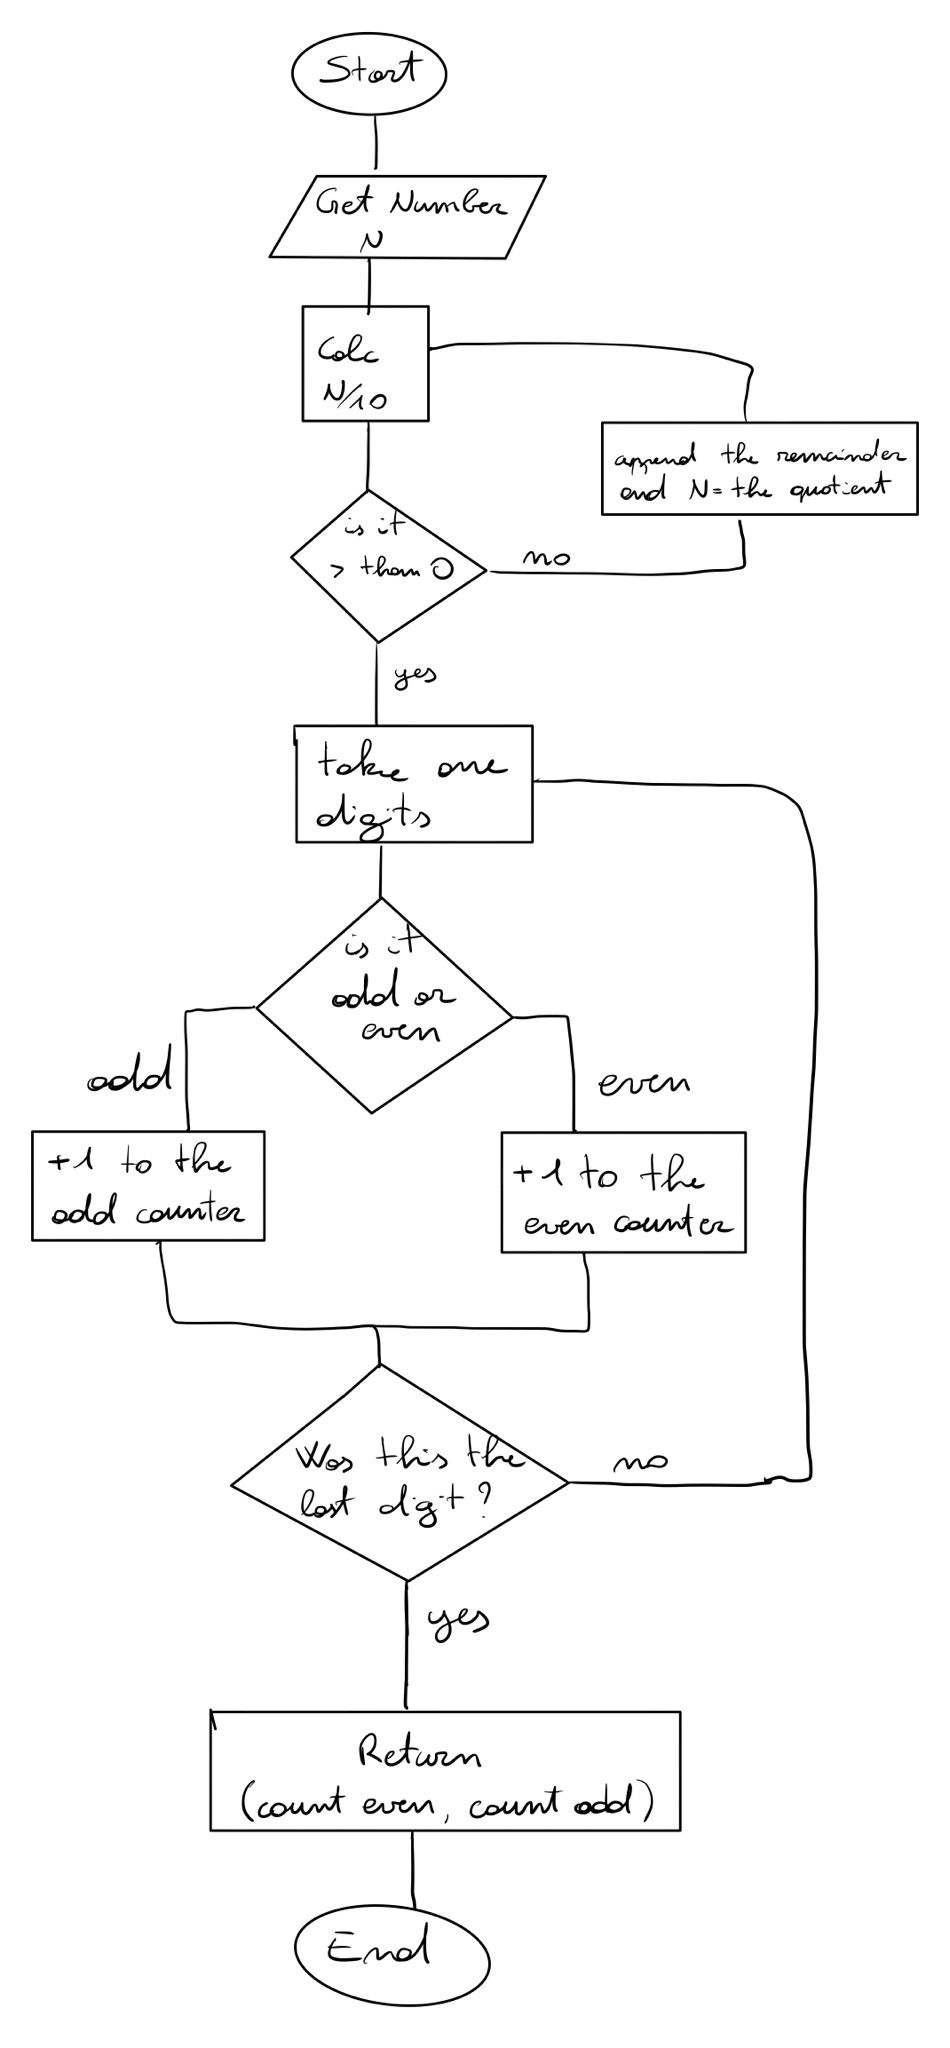 Start
Get Number
N
Calc
N/10
append the remainder
and N = the quotient
is it
> than 0
no
yes
take one
digits
is it
odd or
even
odd
even
+1 to the
odd counter
+1 to the
even counter
Was this the
last digit?
no
yes
Return
(count even, count odd)
End